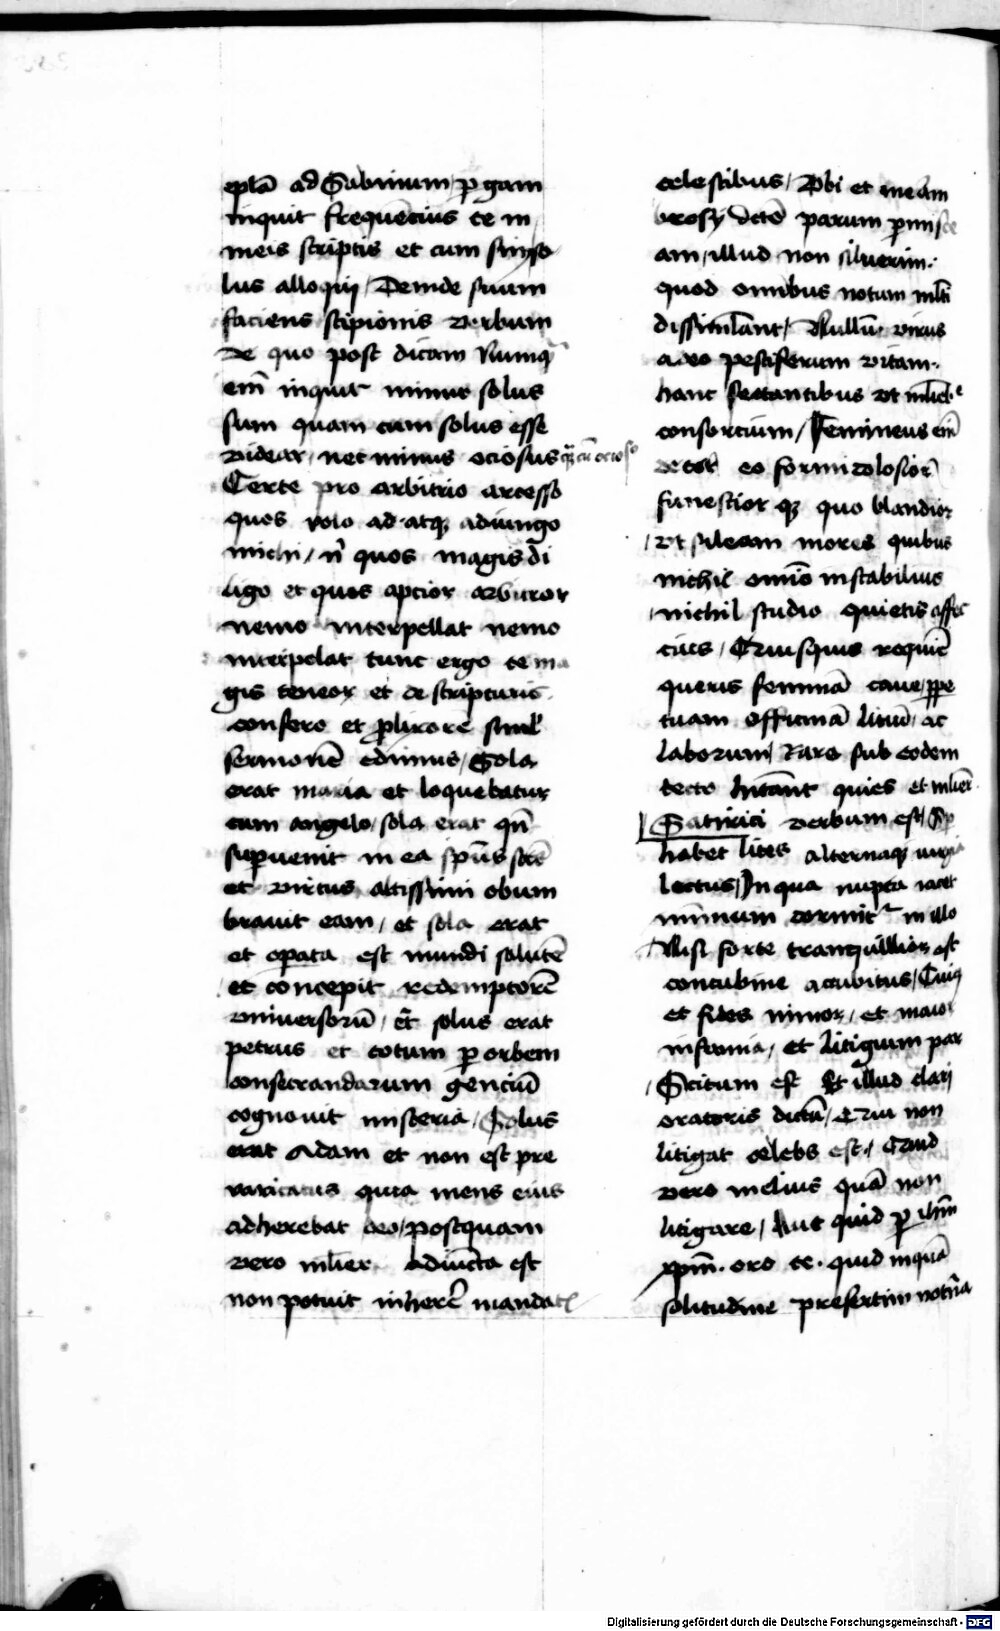 eplā ad Sabinum / p̱gam
inquit frequēcius te in
meis scriptis et cum sim so
lus alloqui / Deinde suum
faciens scipionis verbum
de quo post dicam Numq̄
em̄ inquit minus solus
sum quam cum solus esse
videar / nec minus ociosus qȝ cū ocioso
Certe pro arbitrio arcesso
quos volo ad atqȝ adiungo
michi / n̄ quos magis di
ligo et quos apcior arbitror
nemo interpellat nemo
interpolat tunc ergo te ma
gis teneor et de scripturis
confero et plixiore simul
sermonē edimus / Sola
erat maria et loquebatur
cum angelo / sola erat qn̄
supuenit in ea spūs scūs
et virtus altissimi obum
brauit eam / et sola erat
et opata est mundi salutē
et concepit redemptorē
vniuersorū / et solus erat
petrus et totum p̱ orbem
consecrandarum genciū
cognouit misteria / Solus
erat Adam et non est pre
varicatus quia mens eius
adherebat deo / postquam
vero mlier adiūcta est
non potuit inherē mandatis
celestibus / Vbi et me am
brosij dctō parum pmisce
am / illud non siluerim
quod omībus notum mlti
dissimlant / Nullū virus
adeo pestiferum vitam
hanc sectantibus vt mlieb᷒
consortium / Femineus em̄
decor eo formidolosior
funestior qȝ quo blandior
vt sileam mores quibus
nichil omīo instabilius
nichil studio quietis affec
cius / Quisquis requiē
queris feminā caue / ppe
tuam officinā litiū ac
laborum / Raro sub eodem
tecto hītant quies et mlier
Satirici verbum est / Sp
habet lites alternaqȝ iurgia
lectus / In qua nupta iacet
minimum dormit᷑ in illo
Nisi forte tranquillior est
concubine accubitus / Cuiꝰ
et fides minor / et maior
infamia / et litigium par
Scitum est et illud clari
oratoris dictū / Qui non
litigat celebs est / Quid
vero melius quā non
litigare / Aut quid p̱
xpm̄ oro te quid inquā
solitudine presertim